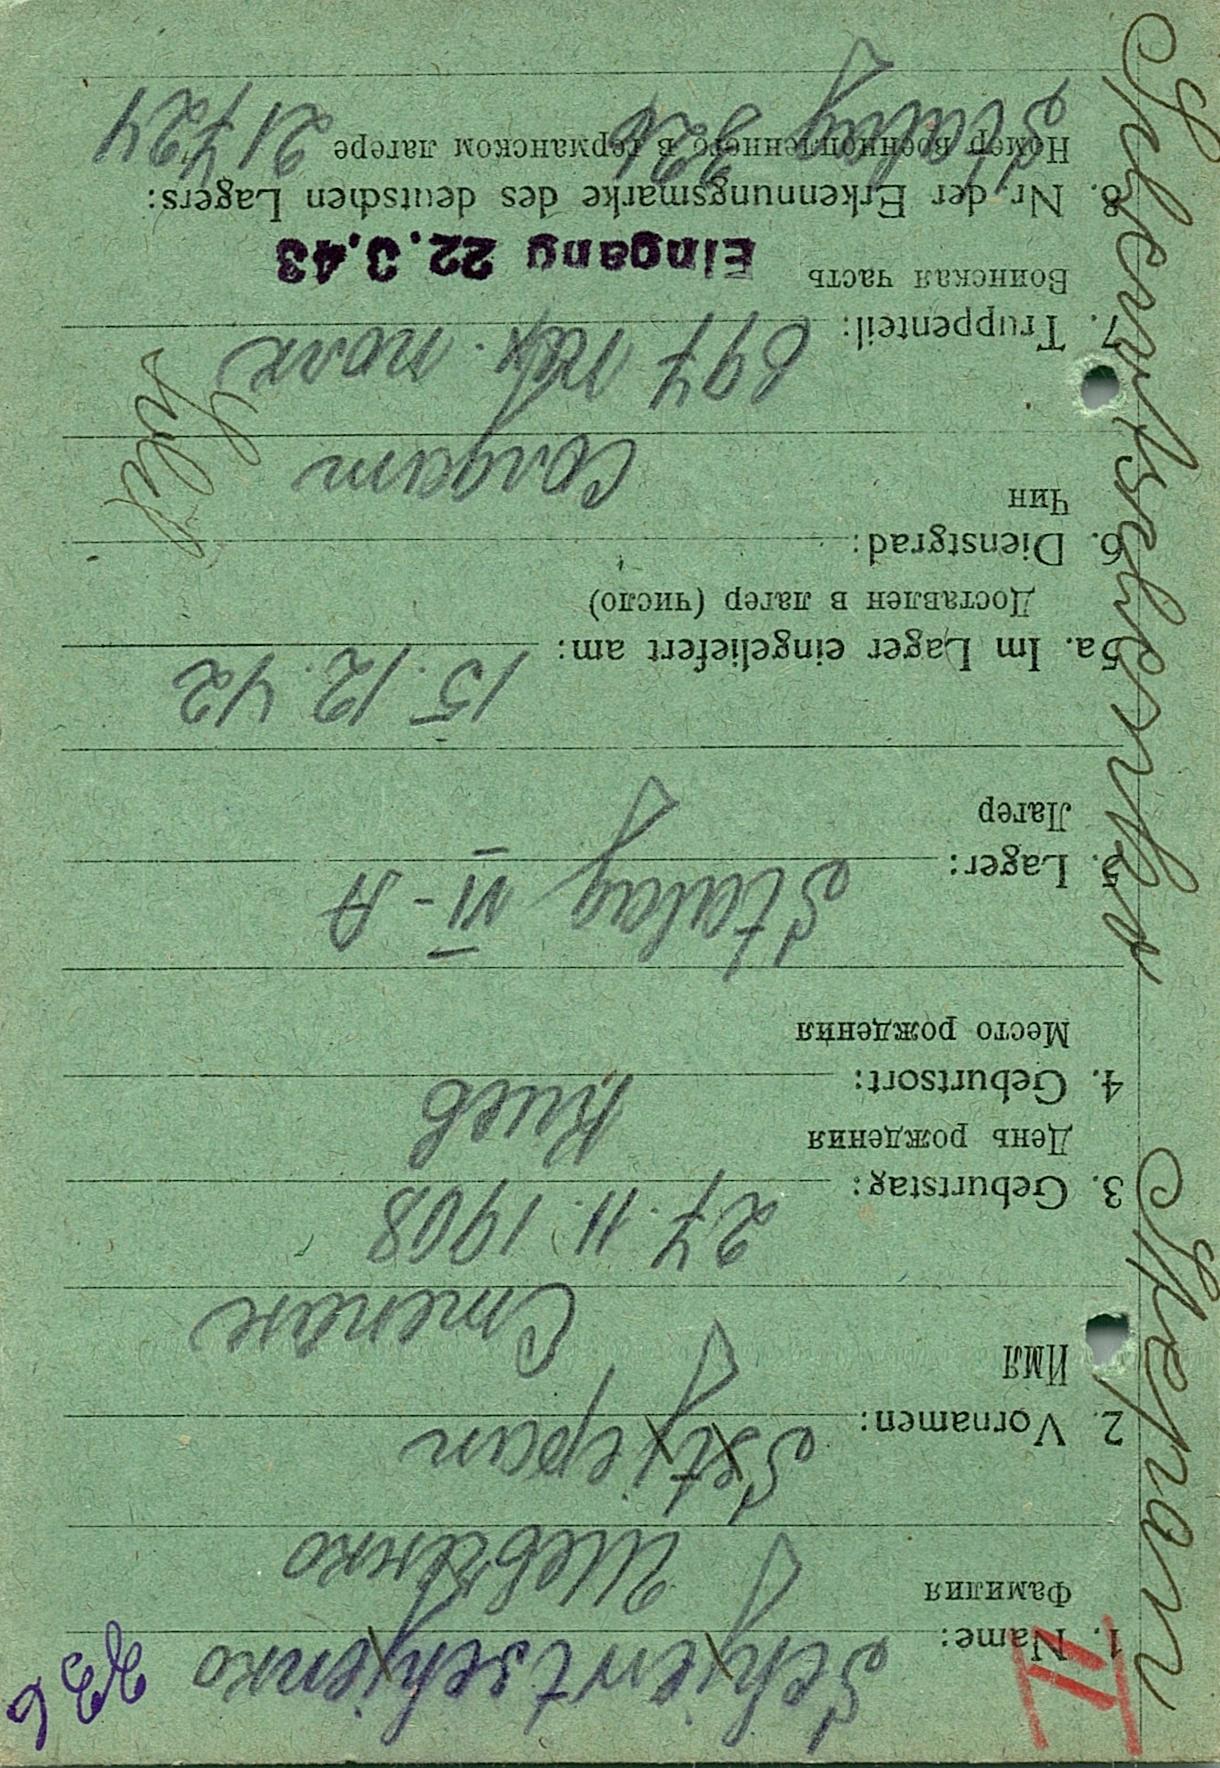 1. Name: Schjewtschjenko
Фамилия Шевченко
2. Vornamen: Stjepan
Имя Степан
3. Geburtstag: 27.11.1908
День рождения
4. Geburtsort: Киев
Место рождения
5. Lager: Stalag VI-A
Лагерь
5a. Im Lager eingeliefert am: 15.12.42
Доставлен в лагерь (число)
6. Dienstgrad: Солдат
Чин
7. Truppenteil: 697 пех. полк
Воинская часть Eingang 22.3.43
8. Nr. der Erkennungsmarke des deutschen Lagers:
Номер военнопленного в германском лагере 21724
Stalag 326
Schewtschenko Stepan
II